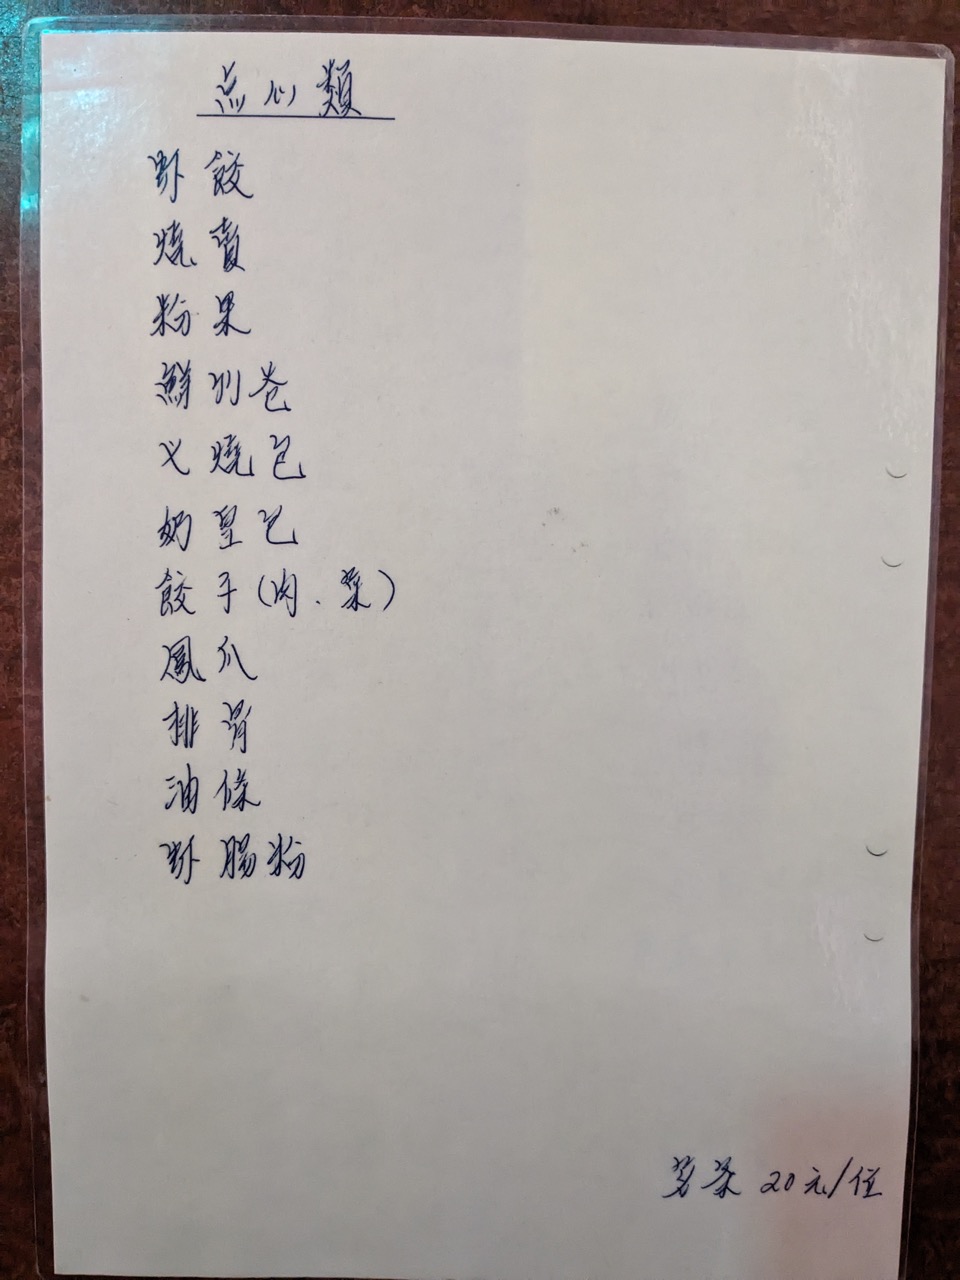 点心類
虾餃
燒賣
粉果
鮮竹卷
叉燒包
奶皇包
餃子(肉、菜)
鳳爪
排骨
油條
虾腸粉
茗茶 20元/位